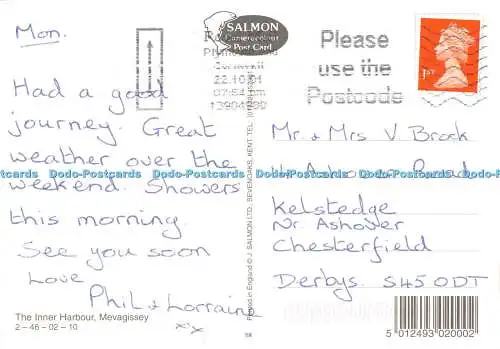 Mon.
Had a good
journey. Great
weather over the
weekend. Showers
this morning.
See you soon
Love
Phil & Lorraine
x x
The Inner Harbour, Mevagissey
2 – 46 – 02 – 10
SALMON
Cameracolour
Post Card
22.10.01
07:54 pm
Please
use the
Postcode
1ST
Printed in England © J. SALMON LTD., SEVENOAKS, KENT. TEL.
58
Mr. & Mrs V Brock
Ashover Road
Kelstedge
Nr Ashover
Chesterfield
Derbys S45 0DT
5 012493 020002
Dodo-Postcards Dodo-Postcards Dodo-Postcards Dodo-Postcards